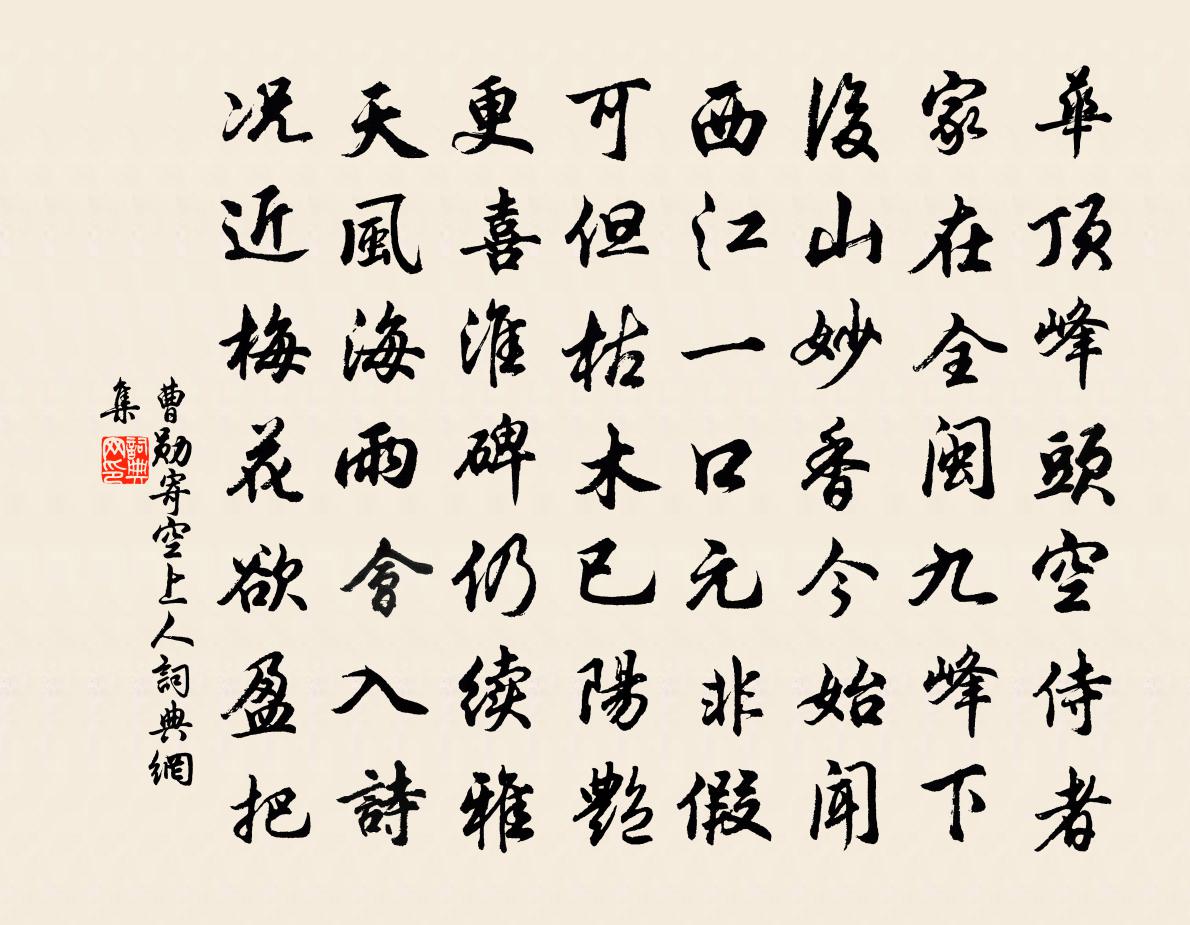 華頂峰頭空侍者
家在全閩九峰下
後山妙香今始聞
西江一口元非假
可但枯木已陽艷
更喜淮碑仍續雅
天風海雨會入詩
况近梅花欲盈把
曹勛寄空上人詞典網
集
詞典
网印